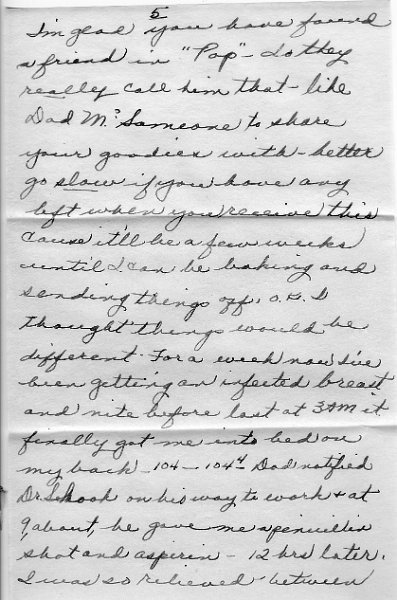 5
I'm glad you have found
a friend in "Pop" - do they
really call him that - like
Dad M.? Someone to share
your goodies with - better
go slow if you have any
left when you receive this
cause it'll be a few weeks
until I can be baking and
sending things off. O.G. I
thought things would be
different. For a week now I've
been getting an infected breast
and nite before last at 3AM it
finally got me into bed on
my back - 104 - 104⁴ Dad notified
Dr. on his way to work & at
9, about, he gave me a penicillin
shot and aspirin - 12 hrs later.
I was so relieved - between